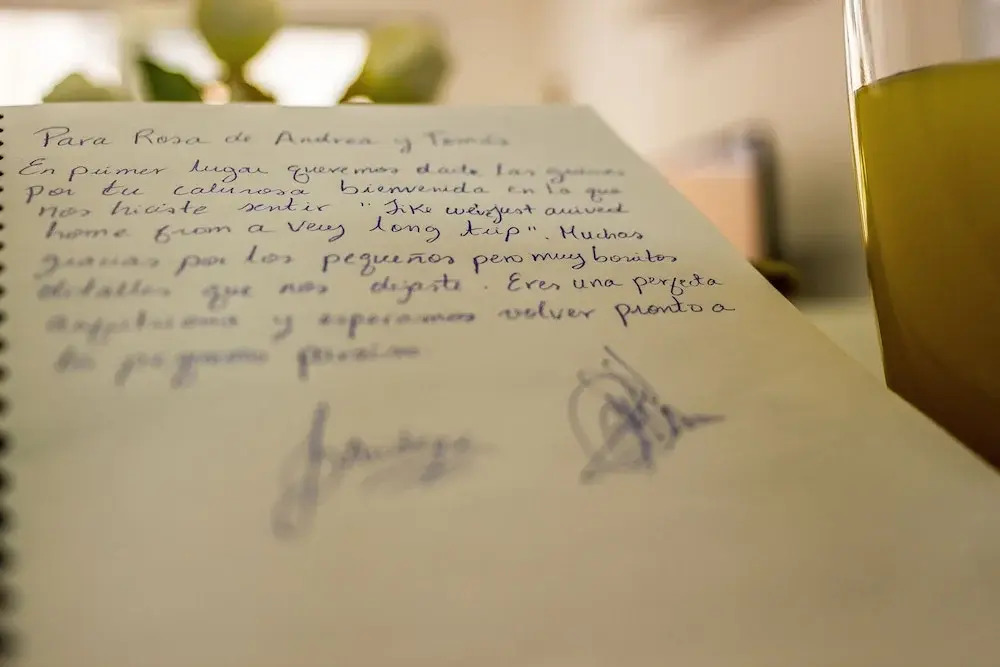 Para Rosa de Andrea y Tomás
En primer lugar queremos darte las gracias
por tu calurosa bienvenida en la que
nos hiciste sentir "like we just arrived
home from a very long trip". Muchas
gracias por los pequeños pero muy bonitos
detalles que nos dejaste. Eres una perfecta
anfitriona y esperamos volver pronto a